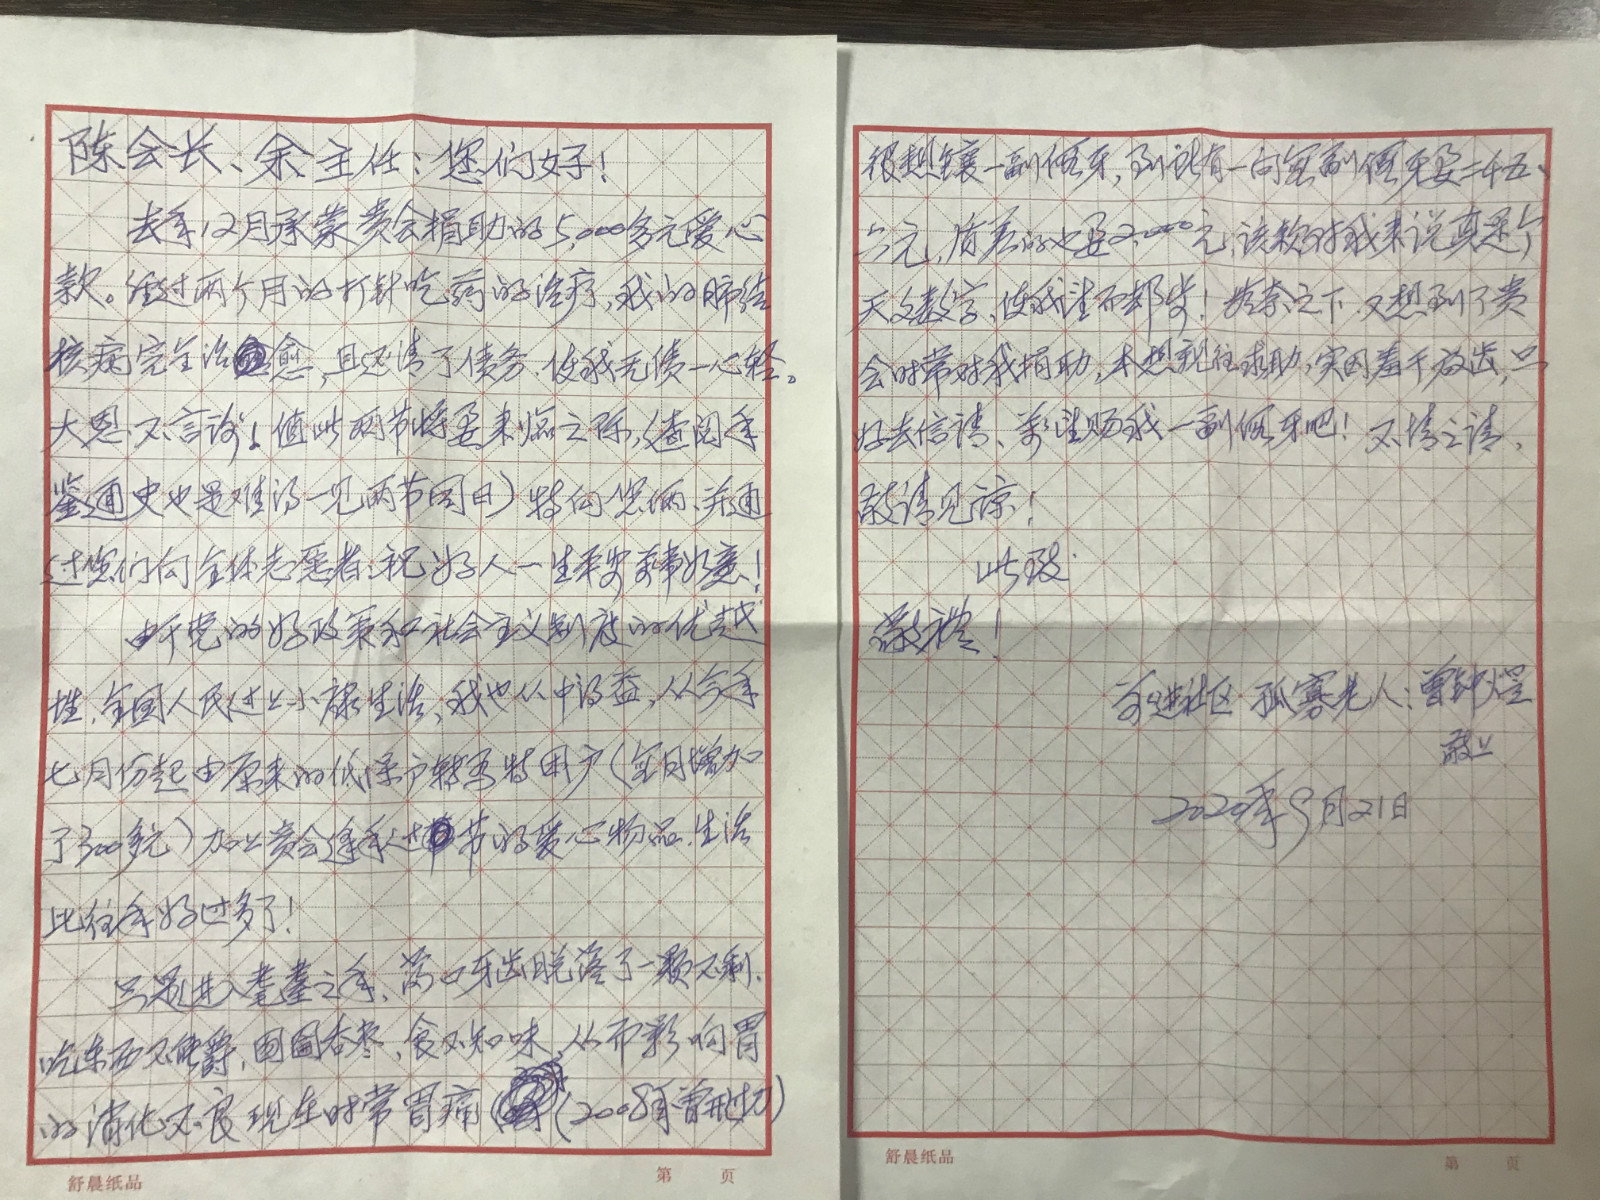 陈会长、余主任：您们好！
去年12月承蒙贵会捐助的5,000多元爱心
款。经过两个月的打针吃药的治疗，我的肺结
核病完全治愈，且还清了债务，使我无债一心轻。
大恩不言谢！值此两节将要来临之际，（查阅年
鉴通史也是难得一见两节同日）特向您俩、并通
过您们向全体志愿者：祝好人一生平安万事如意！
由于党的好政策和社会主义制度的优越
性，全国人民过上小康生活，我也从中得益，从今年
七月份起由原来的低保户转为特困户（每月增加
了300多元）加上贵会逢年过节的爱心物品，生活
比往年好过多了！
只是进入耄耋之年，满口牙齿脱落了一颗不剩，
吃东西不能嚼，囫囵吞枣，食不知味，从而影响胃
的消化不良现在时常胃痛（2008年曾开过刀）
舒晨纸品
第 页
很想镶一副假牙，到就有一问每副假牙要二千五、
六元，质差的也要2000元，该款对我来说真是个
天文数字，使我望而却步！无奈之下，又想到了贵
会时常对我捐助，本想亲往求助，实因羞于启齿，只
好去信请、万望赐我一副假牙吧！不情之请，
敬请见谅！
此致
敬礼！
前进社区 孤寡老人：曾钟煜
敬上
2020年9月21日
舒晨纸品
第 页